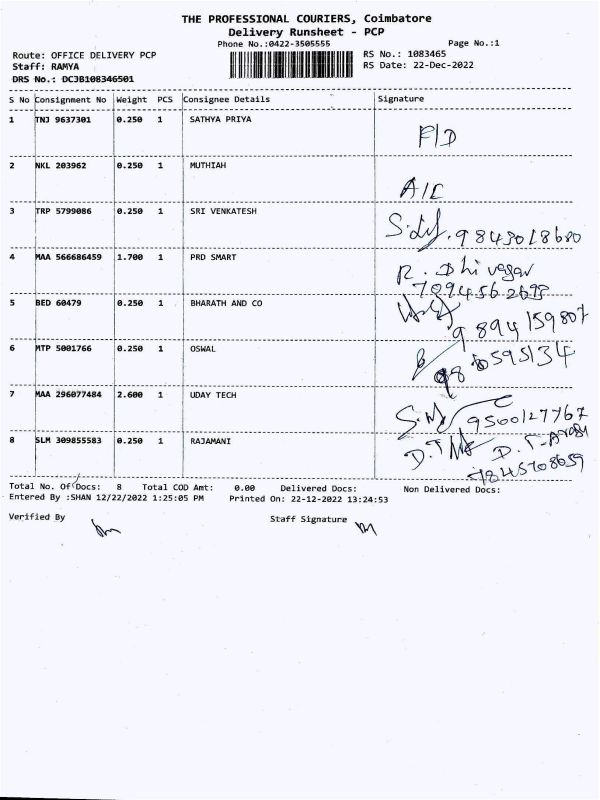 THE PROFESSIONAL COURIERS, Coimbatore
Delivery Runsheet - PCP
Phone No.:0422-3505555 Page No.:1
Route: OFFICE DELIVERY PCP RS No.: 1083465
Staff: RAMYA RS Date: 22-Dec-2022
DRS No.: DCJB108346501
S No Consignment No Weight PCS Consignee Details Signature
1 TNJ 9637301 0.250 1 SATHYA PRIYA
F/D
2 NKL 203962 0.250 1 MUTHIAH
A/C
3 TRP 5799086 0.250 1 SRI VENKATESH
9843018680
4 MAA 566686459 1.700 1 PRD SMART
R. Dhivagar
7094562698
5 BED 60479 0.250 1 BHARATH AND CO
9894159807
6 MTP 5001766 0.250 1 OSWAL
7 MAA 296077484 2.600 1 UDAY TECH
9500127767
8 SLM 309855583 0.250 1 RAJAMANI
9845708659
Total No. Of Docs: 8 Total COD Amt: 0.00 Delivered Docs: Non Delivered Docs:
Entered By :SHAN 12/22/2022 1:25:05 PM Printed On: 22-12-2022 13:24:53
Verified By Staff Signature